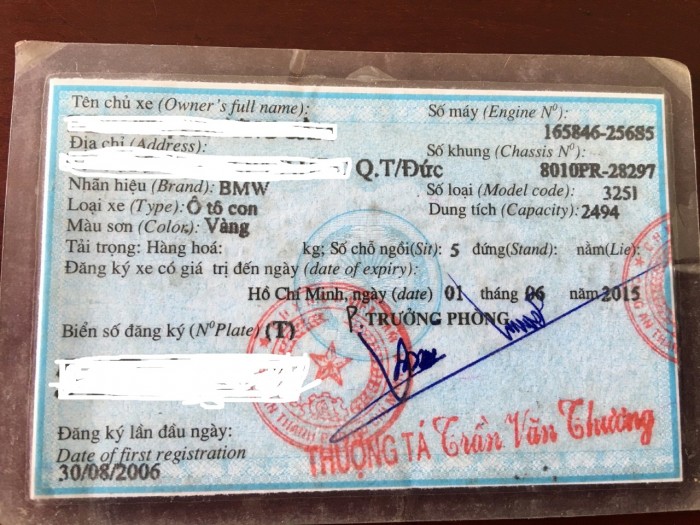 Tên chủ xe (Owner's full name):
Số máy (Engine Nº):
165846-25685
Địa chỉ (Address):
Số khung (Chassis Nº):
Q.T/Đức
8010PR-28297
Nhãn hiệu (Brand): BMW
Số loại (Model code): 325I
Loại xe (Type): Ô tô con
Dung tích (Capacity): 2494
Màu sơn (Color): Vàng
Tải trọng: Hàng hoá: kg; Số chỗ ngồi(Sit): 5 đứng(Stand): nằm(Lie):
Đăng ký xe có giá trị đến ngày (date of expiry):
Hồ Chí Minh, ngày (date) 01 tháng 06 năm 2015
P. TRƯỞNG PHÒNG
Biển số đăng ký (NºPlate) (T)
Đăng ký lần đầu ngày:
Date of first registration
30/08/2006
THƯỢNG TÁ Trần Văn Thương